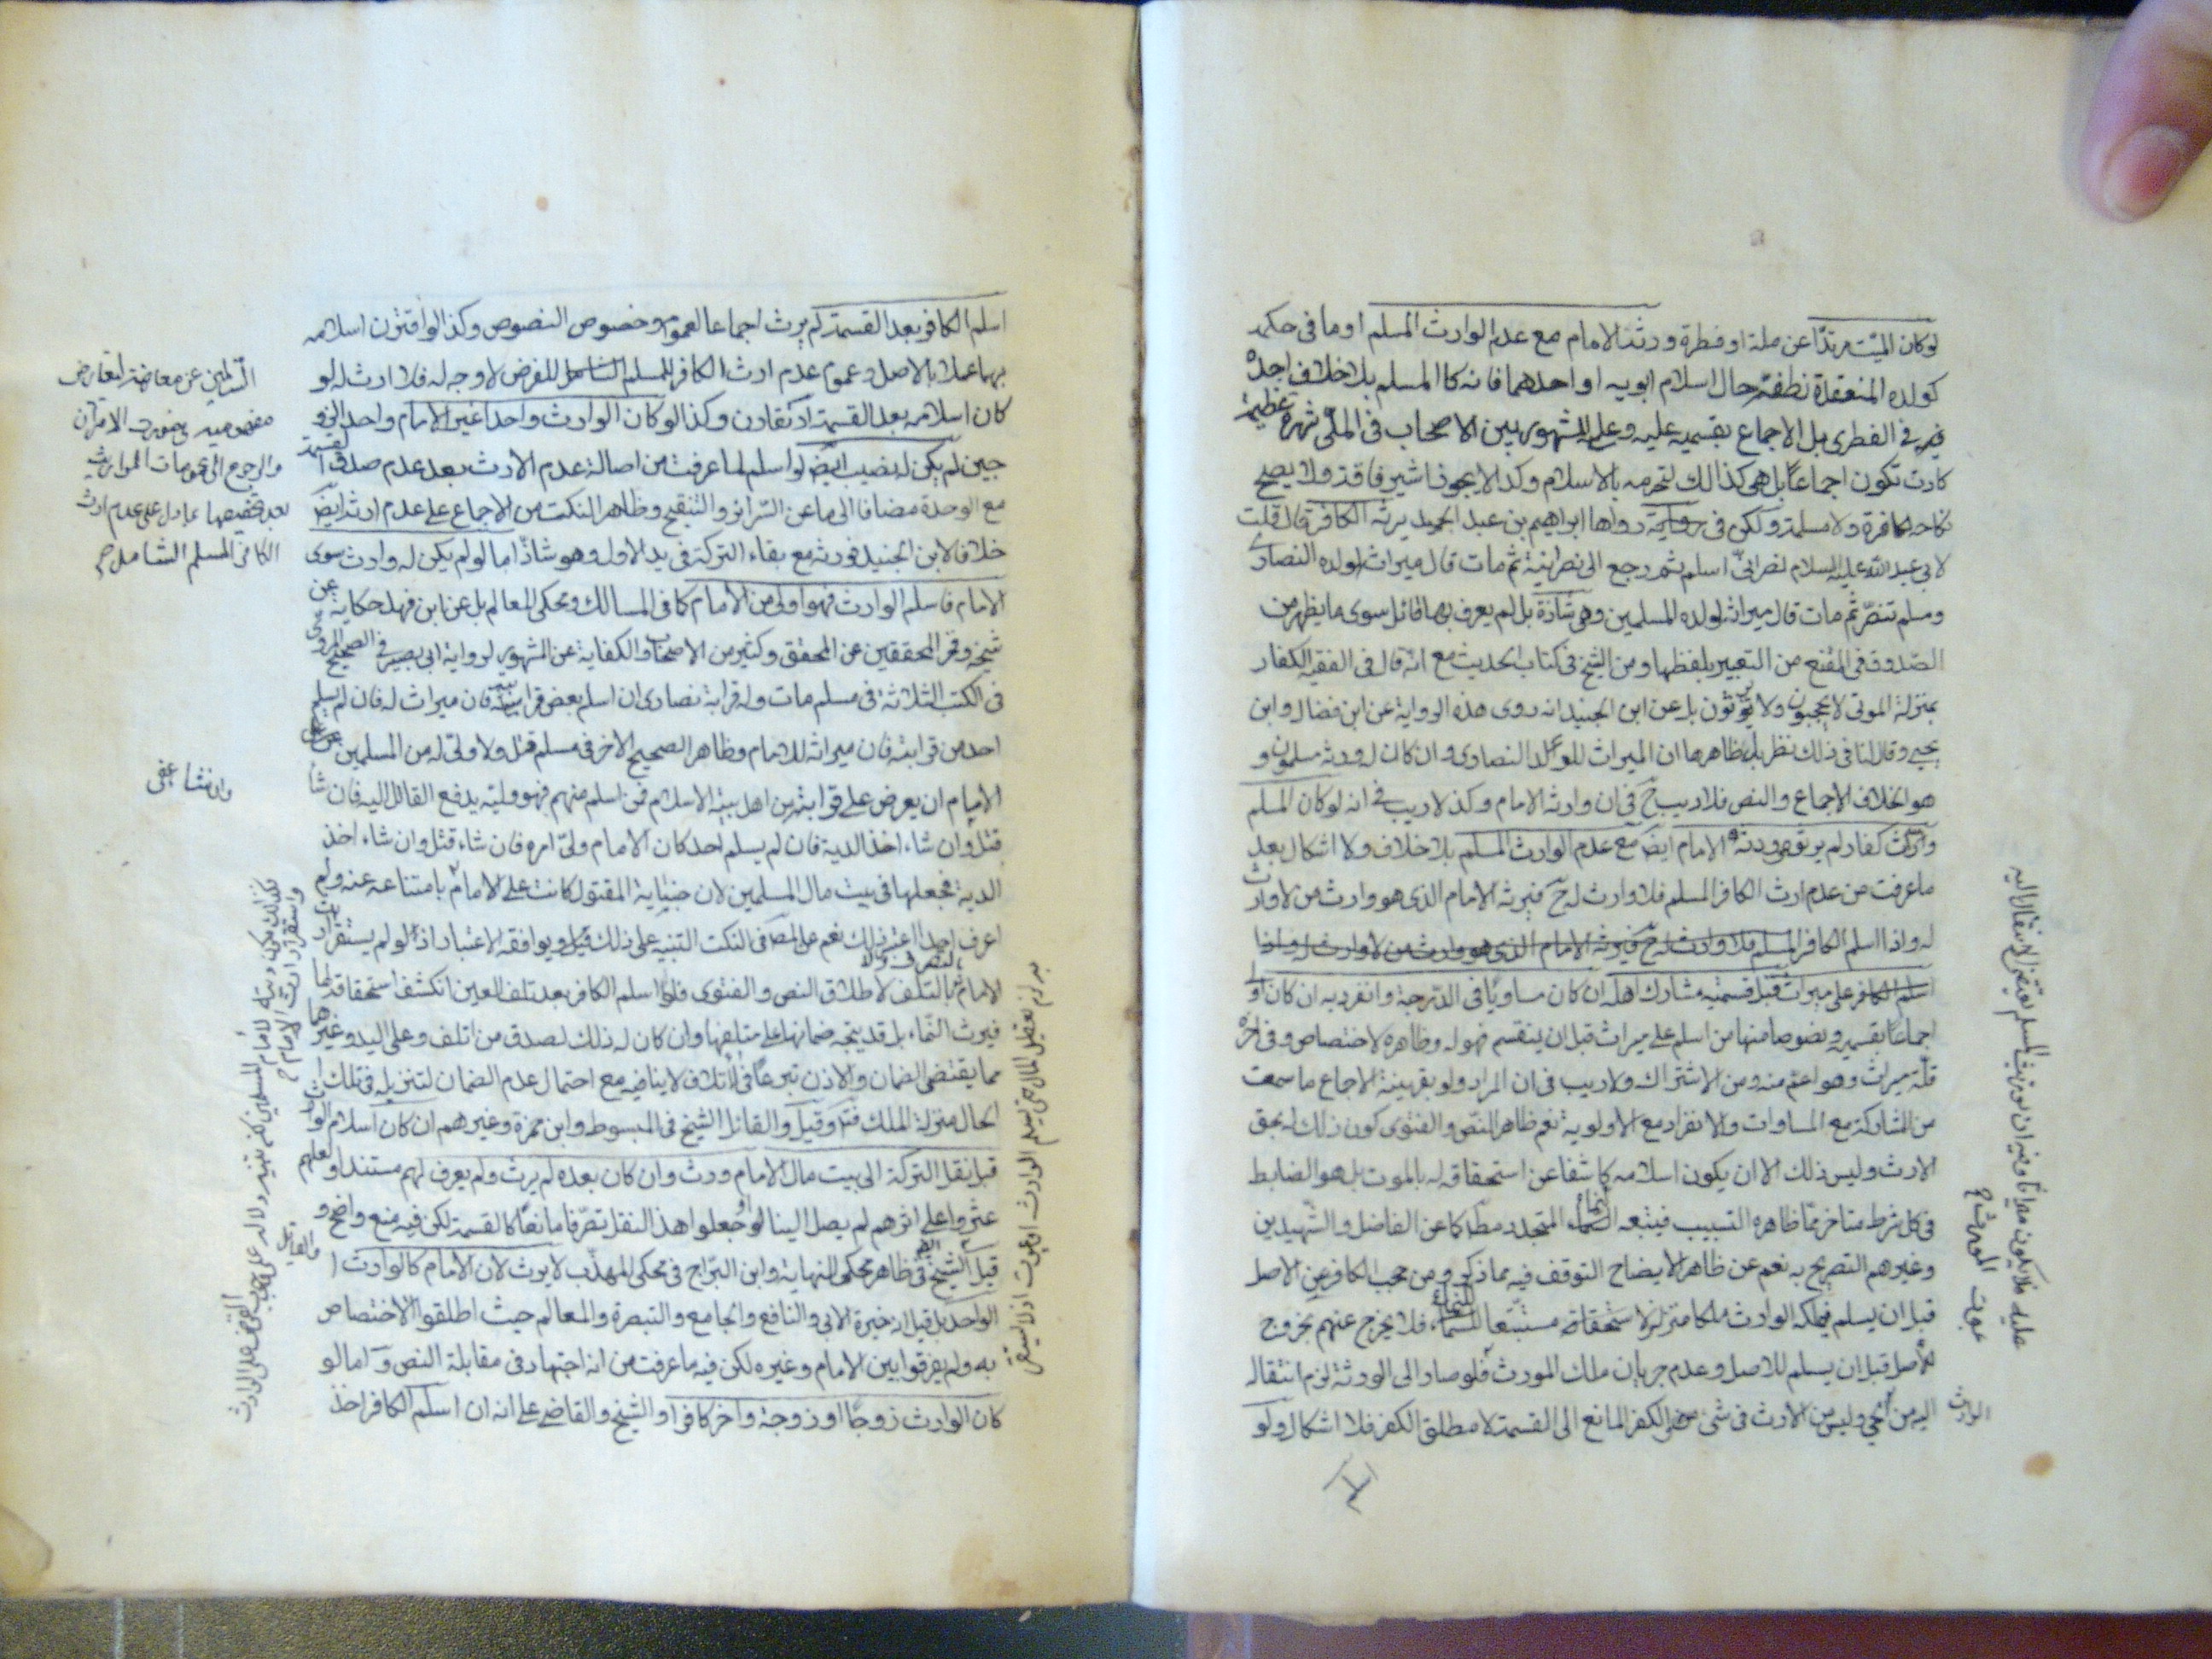 لو كان الميت مرتدا عن ملة او فطرة ورثه الامام مع عدم الوارث المسلم او ما في حكمه
كولده المنعقدة نطفته حال اسلام ابويه او احدهما فانه كالمسلم بلا خلاف اجده
فيه في الفطري بل الاجماع بقسميه عليه وعلى المشهور بين الاصحاب في الملي شهرة عظيمة
كادت تكون اجماعا بل هي كذلك لتحرمه بالاسلام وكذا لا يجوز استرقاقه ولا يصح
نكاحه لكافرة ولا مسلمة ولكن في رواية رواها ابراهيم بن عبد الحميد يرثه الكافر قال قلت
لابي عبد الله عليه السلام نصراني اسلم ثم رجع الى نصرانية ثم مات قال ميراثه لولده النصارى
ومسلم تنصر ثم مات قال ميراثه لولده المسلمين وهي شاذة بل لم يعرف بها قائل سوى ما يظهر من
الصدوق في المقنع من التعبير بلفظها ومن الشيخ في كتاب الحديث مع انه قال في الفقيه الكفار
بمنزلة الموتى لا يحجبون ولا يرثون بل عن ابن الجنيد انه روى هذه الرواية عن ابن فضال وابن
يحيى وقال لنا في ذلك نظر بل ظاهرها ان الميراث للولد النصارى وان كان له ورثة مسلمون و
هو الخلاف الاجماع والنص فلا ريب ح في ان وارثه الامام وكذ لا ريب في انه لو كان المسلم
وارث كفار لم يرثوه وورثه الامام ايض مع عدم الوارث المسلم بلا خلاف ولا اشكال بعد
ما عرفت من عدم ارث الكافر المسلم فلا وارث له ح فيرثه الامام الذي هو وارث من لا وارث
له واذا اسلم الكافر المسلم فلا وارث له ح فيرثه الامام الذي هو وارث من لا وارث له واذا
اسلم الكافر على ميراث قبل قسمته مشارك اهله ان كان مساويا في الدرجة وانفرد به ان كان اولى
اجماعا بقسميه ونصوصا منها من اسلم على ميراث قبل ان ينقسم فهو له وظاهره الاختصاص وفي اخر
فله ميراثه وهو اعم منه ومن الاشتراك ولا ريب في ان المراد ولو بقرينة الاجماع ما سمعت
من المشاركة مع المساوات والانفراد مع الاولوية نعم ظاهر النص والفتوى كون ذلك له بحق
الارث وليس ذلك الا ان يكون اسلامه كاشفا عن استحقاقه له بالموت بل هو الضابط
في كل شرط متاخر عما ظاهره التسبيب فيتبعه النماء المتجدد مطلقا كما عن الفاضل والشهيدين
وغيرهم التصريح به نعم عن ظاهر الايضاح التوقف فيه مما ذكر ومن حجب الكافر عن الاصل
قبل ان يسلم فيملكه الوارث ملكا متزلزلا استحقاقه مستتبعا للنماء فلا يخرج عنهم بخروج
الاصل قبل ان يسلم للاصل وعدم جريان ملك المورث فلو صار الى الورثة لزم انتقاله
اليه من الحي وليس من الارث في شئ الكفر المانع الى القسمة لا مطلق الكفر فلا اشكال ولو
اسلم
الوارث
اسلم الكافر بعد القسمة لم يرث اجماعا لعموم وخصوص النصوص وكذا لو اقترن اسلامه
بها عملا بالاصل وعموم عدم ارث الكافر المسلم الشامل للفرض لا وجه له فلا ارث له لو
كان اسلامه بعد القسمة او تقارن وكذا لو كان الوارث واحدا غير الامام واحد الزو
جين لم يكن له نصيب ايض لو اسلم لما عرفت من اصالة عدم الارث بعد عدم صدق القسمة
مع الوحدة مضافا الى ما عن السرائر والتنقيح وظاهر النكت من الاجماع على عدم ارثه ايض
خلافا لابن الجنيد فورثه مع بقاء التركة في يد الاول وهو شاذ اما لو لم يكن له وارث سوى
الامام فاسلم الوارث فهو اولى من الامام كما في المسالك ومحكي المعالم بل عن ابن فهد حكاية عن
شيخه وفخر المحققين عن المحقق وكثير من الاصحاب والكفاية عن المشهور لرواية ابي بصير في الصحيح المروي
في الكتب الثلاثة في مسلم مات وله قرابة نصارى ان اسلم بعض قرابته فان ميراثه له فان لم يسلم
احد من قرابته فان ميراثه للامام وظاهر الصحيح الاخر في مسلم قتل ولا ولي له من المسلمين على
الامام ان يعرض على قرابته من اهل بيته الاسلام فمن اسلم منهم فهو وليه يدفع القاتل اليه فان شاء
قتل وان شاء اخذ الدية فان لم يسلم احد كان الامام ولي امره فان شاء قتل وان شاء اخذ
الدية فجعلها في بيت مال المسلمين لان جناية المقتول كانت على الامام بامتناعه عنه ولم
اعرف احدا اعتبر ذلك نعم عن المصنف في النكت التنبيه على ذلك قيل ويوافقه الاعتبار اذ لو لم يستقر ارث
الامام بالتلف لاطلاق النص والفتوى فلو اسلم الكافر بعد تلف العين انكشف استحقاقه لها
فيرث النماء بل قد يتجه ضمانها على متلفها وان كان له ذلك لصدق من اتلف وعلى اليد وغيرهما
مما يقتضي الضمان والاذن شرعا في الاتلاف لا ينافيه مع احتمال عدم الضمان لتنزيله في تلك
الحال منزلة الملك فتا وقيل والقائل الشيخ في المبسوط وابن حمزة وغيرهم ان كان اسلام الوارث
قبل نقل التركة الى بيت مال الامام ورث وان كان بعده لم يرث ولم يعرف لهم مستند ولعلهم
عثروا على اثر هم لم يصل الينا او جعلوا هذا النقل تصرفا مانعا كالقسمة لكن فيه منع واضح و
قيل الشيخ في ظاهر محكي النهاية وابن البراج في محكي المهذب لا يرث لان الامام كالوارث
الواحد بل قيل انه خيرة الابي والنافع والجامع والتبصرة والمعالم حيث اطلقوا الاختصاص
به ولم يفرقوا بين الامام وغيره لكن فيه ما عرفت من انه اجتهاد في مقابلة النص واما لو
كان الوارث زوجا او زوجة واخر كافرا والشيخ والقاضي على انه ان اسلم الكافر اخذ
والرجوع الى عمومات المواريث
بعد تخصيصها بما دل على عدم ارث
الكافر المسلم الشامل
وان شاء عفى